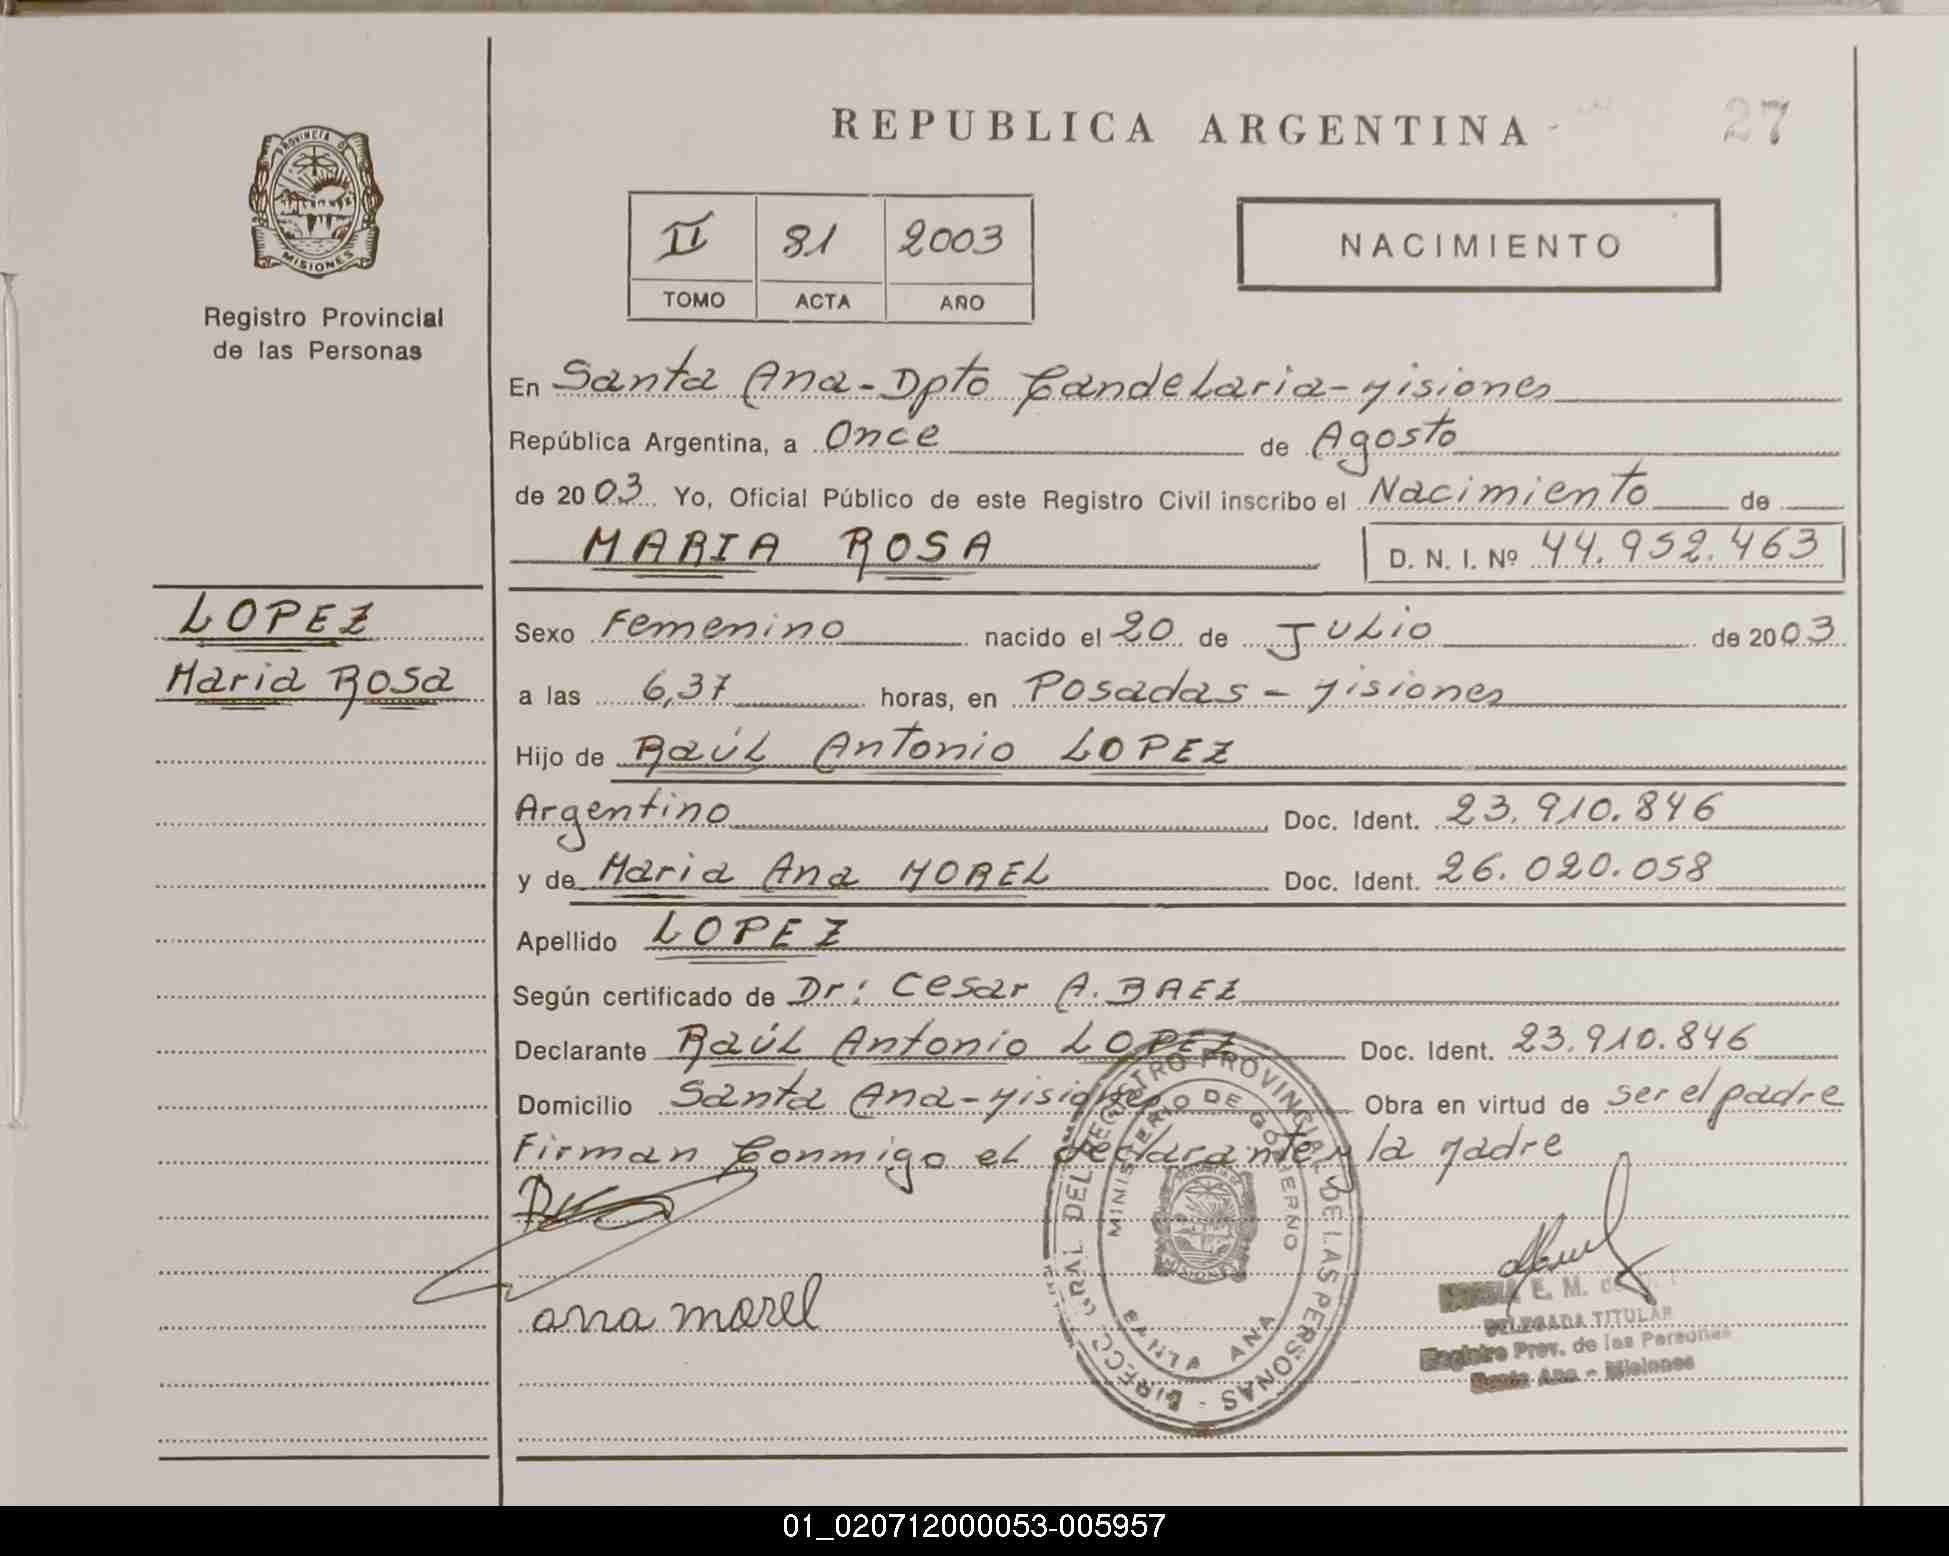 REPUBLICA ARGENTINA
27
PROVINCIA DE
MISIONES
Registro Provincial
de las Personas
II 81 2003
TOMO ACTA AÑO
NACIMIENTO
En Santa Ana-Dpto Candelaria-Misiones
República Argentina, a Once de Agosto
de 2003 Yo, Oficial Público de este Registro Civil inscribo el Nacimiento de
MARIA ROSA D. N. I. Nº 44.952.463
LOPEZ
Maria Rosa
Sexo Femenino nacido el 20 de Julio de 2003
a las 6,37 horas, en Posadas - Misiones
Hijo de Raúl Antonio LOPEZ
Argentino Doc. Ident. 23.910.846
y de Maria Ana MOREL Doc. Ident. 26.020.058
Apellido LOPEZ
Según certificado de Dr: Cesar A. BAEZ
Declarante Raúl Antonio LOPEZ Doc. Ident. 23.910.846
Domicilio Santa Ana-Misiones Obra en virtud de ser el padre
Firman Conmigo el declarante y la Madre
ana morel
DIRECC. GRAL DEL REGISTRO PROVINCIAL DE LAS PERSONAS -
MINISTERIO DE GOBIERNO
MISIONES
SANTA ANA
E. M.
DELEGADA TITULAR
Registro Prov. de las Personas
Santa Ana - Misiones
01_020712000053-005957